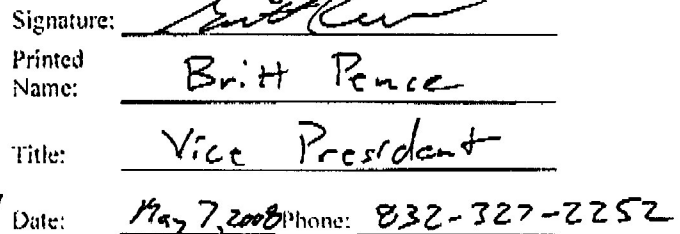 Signature:
Printed
Name: Britt Pence
Title: Vice President
Date: May 7, 2008 Phone: 832-327-2252